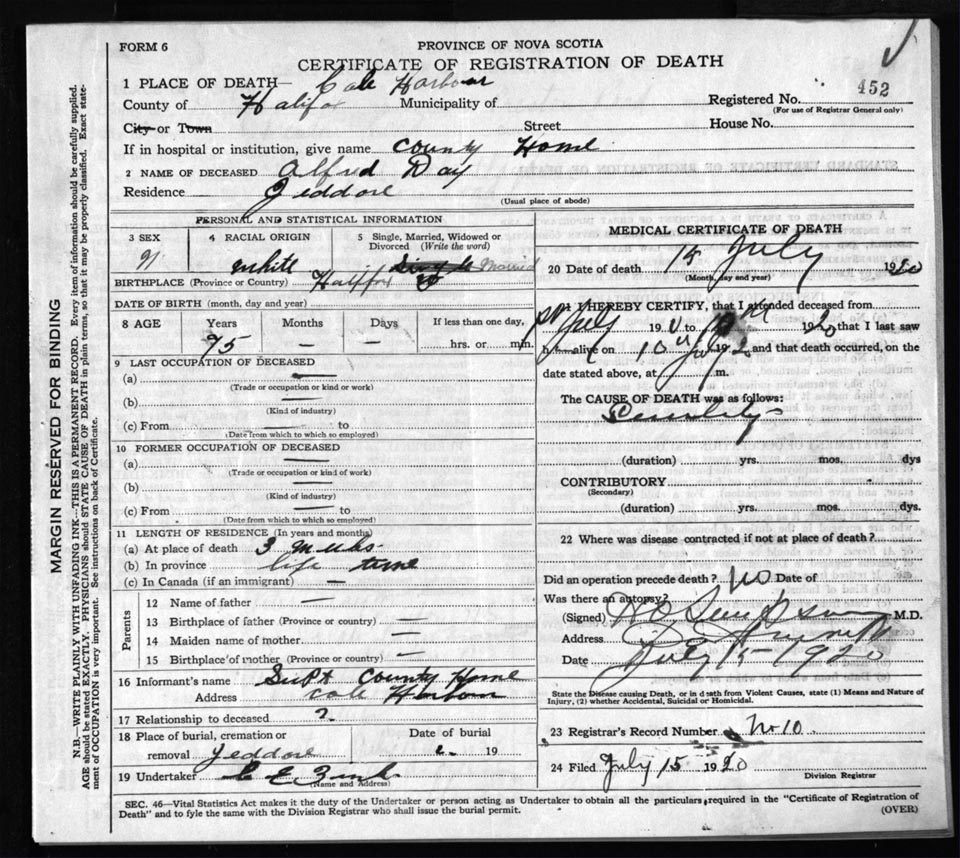 FORM 6
PROVINCE OF NOVA SCOTIA
CERTIFICATE OF REGISTRATION OF DEATH
1 PLACE OF DEATH— Cole Harbour
County of Halifax Municipality of
Registered No. 452
(For use of Registrar General only)
City or Town Street House No.
If in hospital or institution, give name County Home
2 NAME OF DECEASED Alfred Day
Residence Jeddore
(Usual place of abode)
PERSONAL AND STATISTICAL INFORMATION
3 SEX
4 RACIAL ORIGIN White
5 Single, Married, Widowed or Divorced (Write the word) Single Married
BIRTHPLACE (Province or Country) Halifax Co
DATE OF BIRTH (month, day and year)
8 AGE Years Months Days If less than one day,
75 — — hrs. or min.
9 LAST OCCUPATION OF DECEASED
(a) —
(Trade or occupation or kind or work)
(b) —
(Kind of industry)
(c) From — to
(Date from which to which so employed)
10 FORMER OCCUPATION OF DECEASED
(a) —
(Trade or occupation or kind of work)
(b) —
(Kind of industry)
(c) From — to
(Date from which to which so employed)
11 LENGTH OF RESIDENCE (In years and months)
(a) At place of death 3
(b) In province life time
(c) In Canada (if an immigrant) —
Parents
12 Name of father —
13 Birthplace of father (Province or country) —
14 Maiden name of mother —
15 Birthplace of mother (Province or country) —
16 Informant's name Supt County Home
Address Cole Harbour
17 Relationship to deceased ?
18 Place of burial, cremation or removal Jeddore
Date of burial 19
19 Undertaker
(Name and Address)
MEDICAL CERTIFICATE OF DEATH
20 Date of death 15 July 1920
(Month, day and year)
21 I HEREBY CERTIFY, that I attended deceased from
July 19 to 1920 that I last saw
h alive on 10 July 192 and that death occurred, on the
date stated above, at m.
The CAUSE OF DEATH was as follows:
Senility
(duration) yrs. mos. dys
CONTRIBUTORY
(Secondary)
(duration) yrs. mos. dys.
22 Where was disease contracted if not at place of death?
Did an operation precede death? No Date of
Was there an autopsy?
(Signed) M.D.
Address Dartmouth
Date July 15 1920
State the Disease causing Death, or in death from Violent Causes, state (1) Means and Nature of
Injury, (2) whether Accidental, Suicidal or Homicidal.
23 Registrar's Record Number No 10
24 Filed July 15 1920
Division Registrar
SEC. 46—Vital Statistics Act makes it the duty of the Undertaker or person acting as Undertaker to obtain all the particulars required in the "Certificate of Registration of
Death" and to fyle the same with the Division Registrar who shall issue the burial permit.
(OVER)
MARGIN RESERVED FOR BINDING
N.B.—WRITE PLAINLY WITH UNFADING INK—THIS IS A PERMANENT RECORD. Every item of information should be carefully supplied.
AGE should be stated EXACTLY. PHYSICIANS should STATE CAUSE OF DEATH in plain terms, so that it may be properly classified. Exact state-
ment of OCCUPATION is very important. See instructions on back of Certificate.